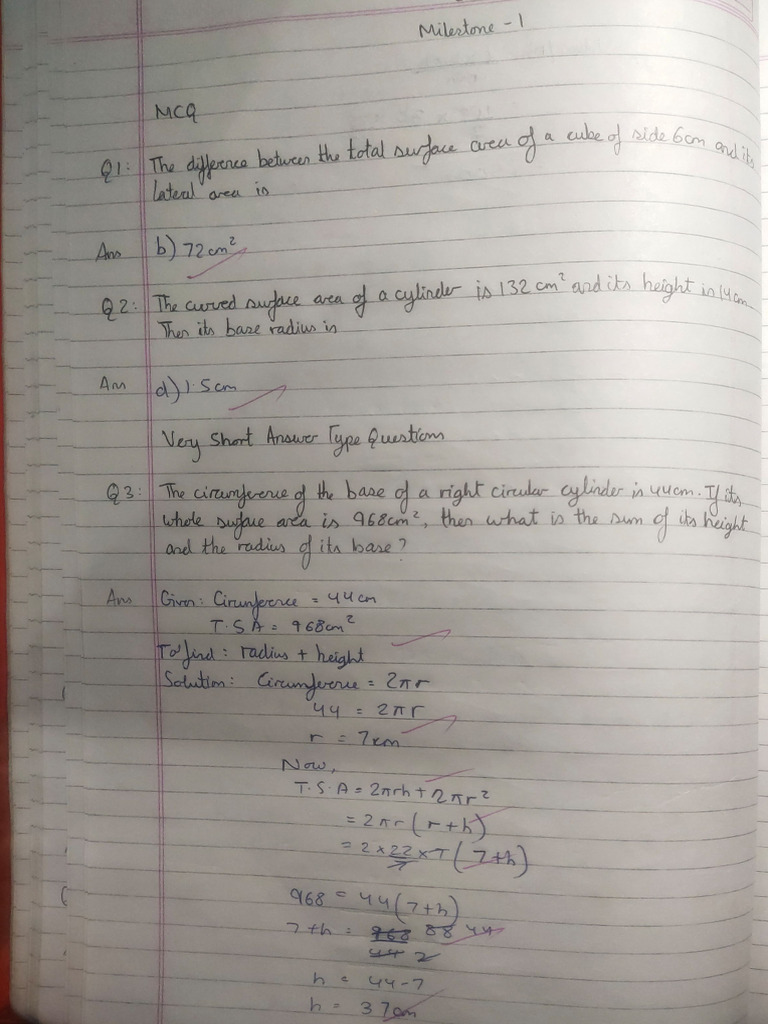 Milestone - 1
MCQ
Q1: The difference between the total surface area of a cube of side 6cm and its
lateral area is
Ans b) 72cm²
Q2: The curved surface area of a cylinder is 132 cm² and its height is 14cm.
Then its base radius is
Ans d) 1.5cm
Very Short Answer Type Questions
Q3: The circumference of the base of a right circular cylinder is 44cm. If its
whole surface area is 968cm², then what is the sum of its height
and the radius of its base?
Ans Given: Circumference = 44cm
T.S.A = 968cm²
To find: radius + height
Solution: Circumference = 2πr
44 = 2πr
r = 7cm
Now,
T.S.A = 2πrh + 2πr²
= 2πr (r+h)
= 2 × 22/7 × 7 (7+h)
968 = 44 (7+h)
7+h = 968/44 88/2 44
h = 44-7
h = 37cm